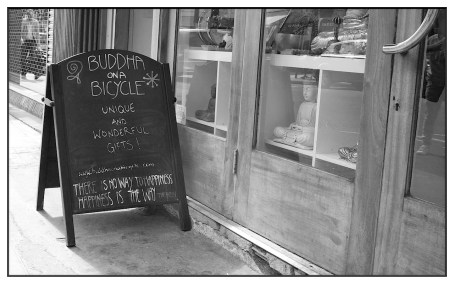 BUDDHA
ON A
BICYCLE
UNIQUE
AND
WONDERFUL
GIFTS!
THERE IS NO WAY TO HAPPINESS
HAPPINESS IS THE WAY